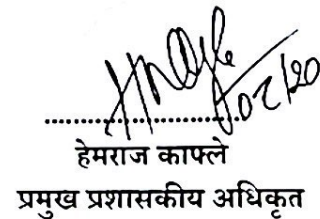 ०८/२०
हेमराज काफ्ले
प्रमुख प्रशासकीय अधिकृत